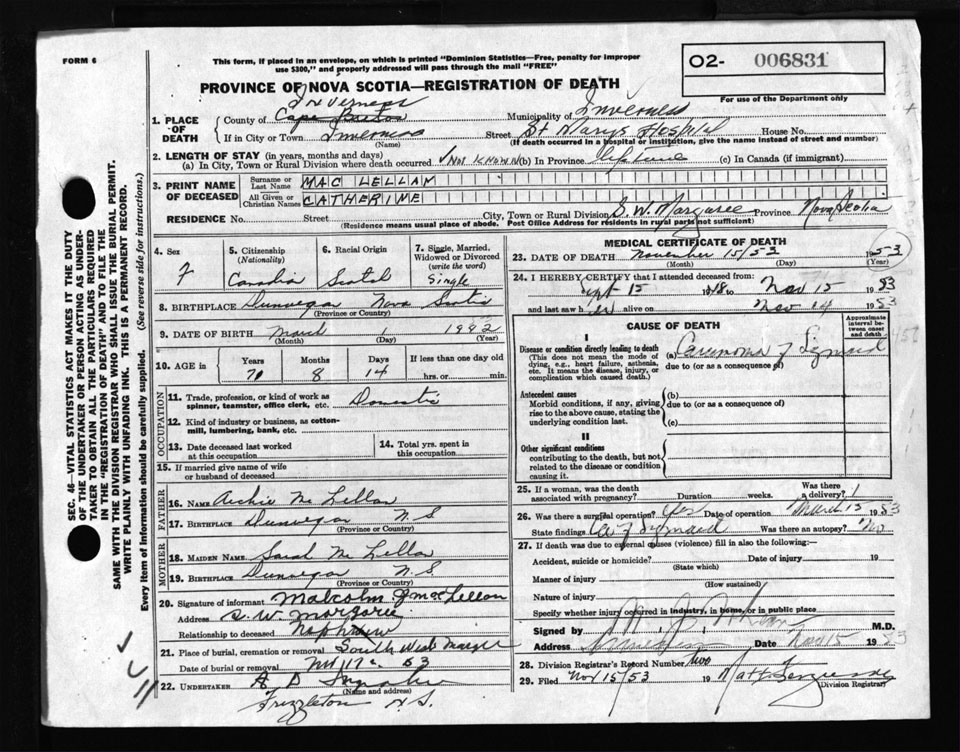 FORM 6
This form, if placed in an envelope, on which is printed "Dominion Statistics—Free, penalty for improper
use $300," and properly addressed will pass through the mail "FREE"
O2- 006831
For use of the Department only
PROVINCE OF NOVA SCOTIA—REGISTRATION OF DEATH
Inverness
1. PLACE OF DEATH
County of Cape Breton Municipality of Inverness
If in City or Town Inverness Street St Marys Hospital House No.
(Name) (If death occurred in a hospital or institution, give the name instead of street and number)
2. LENGTH OF STAY (in years, months and days)
(a) In City, Town or Rural Division where death occurred Not Known (b) in Province Life time (c) in Canada (if immigrant)
3. PRINT NAME OF DECEASED
Surname or Last Name MAC LELLAN
All Given or Christian Names CATHERINE
RESIDENCE No. Street City, Town or Rural Division S. W. Margaree Province Nova Scotia
(Residence means usual place of abode. Post Office Address for residents in rural parts not sufficient)
4. Sex F
5. Citizenship (Nationality) Canadia
6. Racial Origin Scotch
7. Single, Married, Widowed or Divorced (write the word) Single
8. BIRTHPLACE Dunvegan Nova Scotia
(Province or Country)
9. DATE OF BIRTH March 1 1882
(Month) (Day) (Year)
10. AGE in Years 71 Months 8 Days 14 If less than one day old hrs. or min.
OCCUPATION
11. Trade, profession, or kind of work as spinner, teamster, office clerk, etc. Domestic
12. Kind of industry or business, as cotton-mill, lumbering, bank, etc.
13. Date deceased last worked at this occupation
14. Total yrs. spent in this occupation
15. If married give name of wife or husband of deceased
FATHER
16. NAME Archie Mc Lellan
17. BIRTHPLACE Dunvegan N.S.
(Province or Country)
MOTHER
18. MAIDEN NAME Sarah Mc Lellan
19. BIRTHPLACE Dunvegan N.S.
(Province or Country)
20. Signature of informant Malcolm J MacLellan
Address S. W. Margaree
Relationship to deceased Nephew
21. Place of burial, cremation or removal South West Margaree
Date of burial or removal Nov 17 53
22. UNDERTAKER A D
(Name and address)
Frizzleton N.S.
MEDICAL CERTIFICATE OF DEATH
23. DATE OF DEATH November 15/53 1953
(Month) (Day) (Year)
24. I HEREBY CERTIFY that I attended deceased from:
Sept 15 to Nov 15 1953
and last saw her alive on Nov 14 1953
CAUSE OF DEATH
Approximate interval between onset and death
I
Disease or condition directly leading to death
(This does not mean the mode of dying, e.g., heart failure, asthenia, etc. It means the disease, injury, or complication which caused death.)
(a) Carcinoma of Sigmoid
due to (or as a consequence of)
Antecedent causes
Morbid conditions, if any, giving rise to the above cause, stating the underlying condition last.
(b)
due to (or as a consequence of)
(c)
II
Other significant conditions
contributing to the death, but not related to the disease or condition causing it.
25. If a woman, was the death associated with pregnancy? Duration weeks. Was there a delivery?
26. Was there a surgical operation? Yes Date of operation March 15 1953
State findings Ca of Sigmoid Was there an autopsy? No
27. If death was due to external causes (violence) fill in also the following:
Accident, suicide or homicide? Date of injury 19
(State which)
Manner of injury
(How sustained)
Nature of injury
Specify whether injury occurred in industry, in home, or in public place
Signed by M.D.
Address Inverness Date Nov 15 1953
28. Division Registrar's Record Number
29. Filed Nov 15/53 19
Division Registrar)
SEC. 46—VITAL STATISTICS ACT MAKES IT THE DUTY
OF THE UNDERTAKER OR PERSON ACTING AS UNDER-
TAKER TO OBTAIN ALL THE PARTICULARS REQUIRED
IN THE "REGISTRATION OF DEATH" AND TO FILE THE
SAME WITH THE DIVISION REGISTRAR WHO SHALL ISSUE THE BURIAL PERMIT.
WRITE PLAINLY WITH UNFADING INK. THIS IS A PERMANENT RECORD.
Every item of information should be carefully supplied. (See reverse side for instructions.)